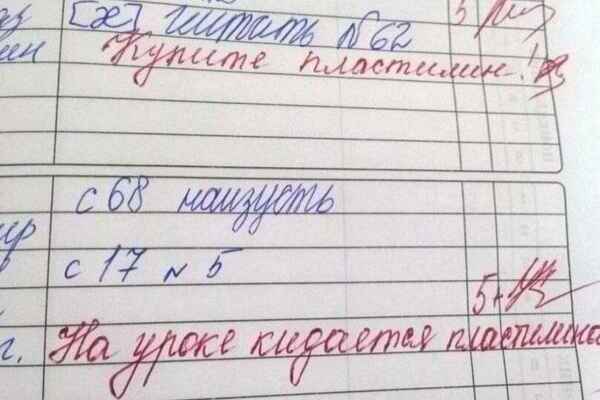 [х] читать №62 5
Купите пластилин!
с 68 наизусть
с 17 № 5
5+
г. На уроке кидается пластилино